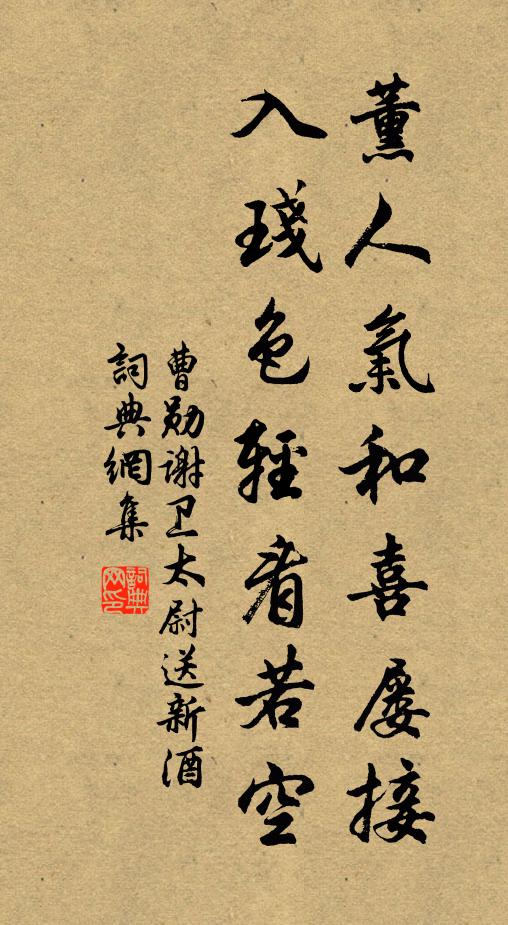 薰人氣和喜屢接
入琖色輕看若空
曹勋謝卫太尉送新酒
詞典網集
詞典网印